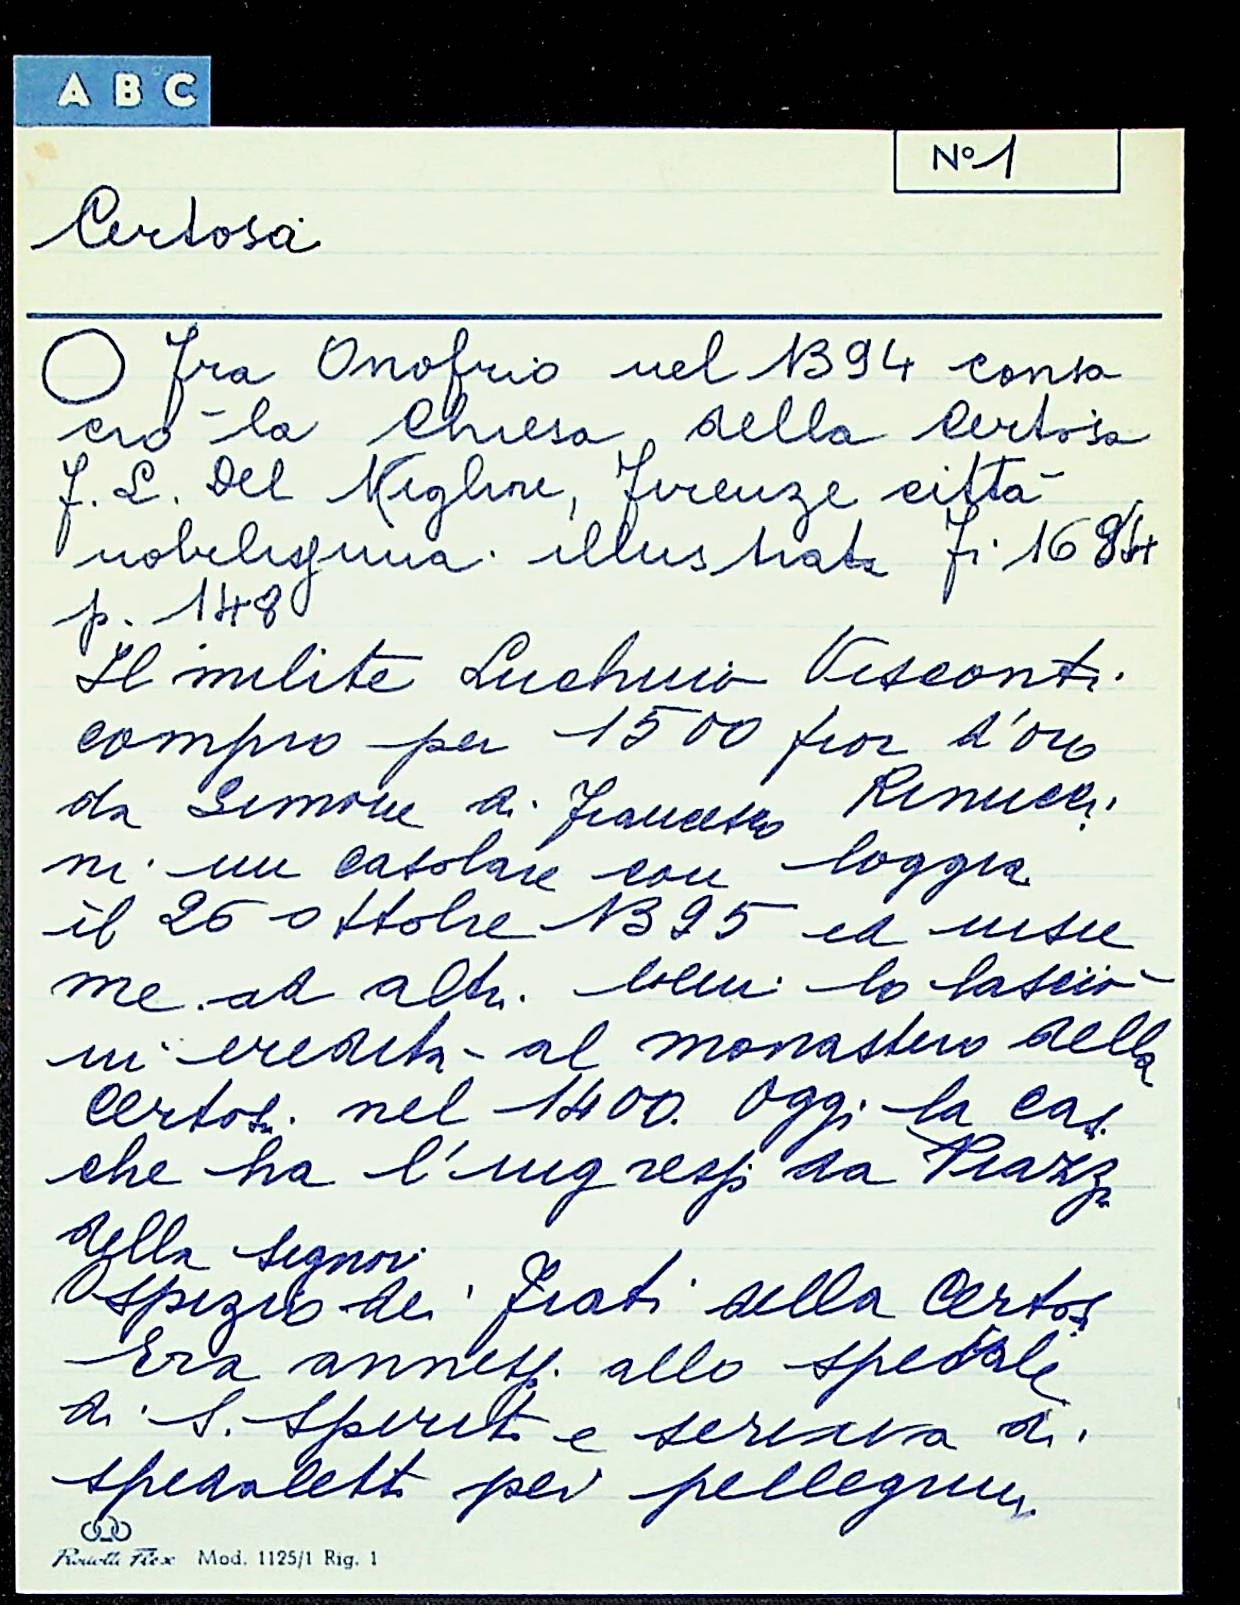 A B C
N° 1
Certosa
Fra Onofrio nel 1394 consa
crò la Chiesa della Certosa
F. L. Del Migliore, Firenze città
nobilissima illustrata Fi. 1684
p. 148
Il milite Luchino Visconti
comprò per 1500 fior d'oro
da Simone di Francesco Rinucci
ni un casolare con loggia
il 26 ottobre 1395 ed insie
me ad altri beni lo lasciò
in eredità al monastero della
Certosa nel 1400. Oggi la casa
che ha l'ingresso da Piazza
della Signori
Ospizio dei Frati della Certosa
Era annesso allo spedale
di S. Spirito e serviva di
spedaletto pei pellegrini
Mod. 1125/1 Rig. 1